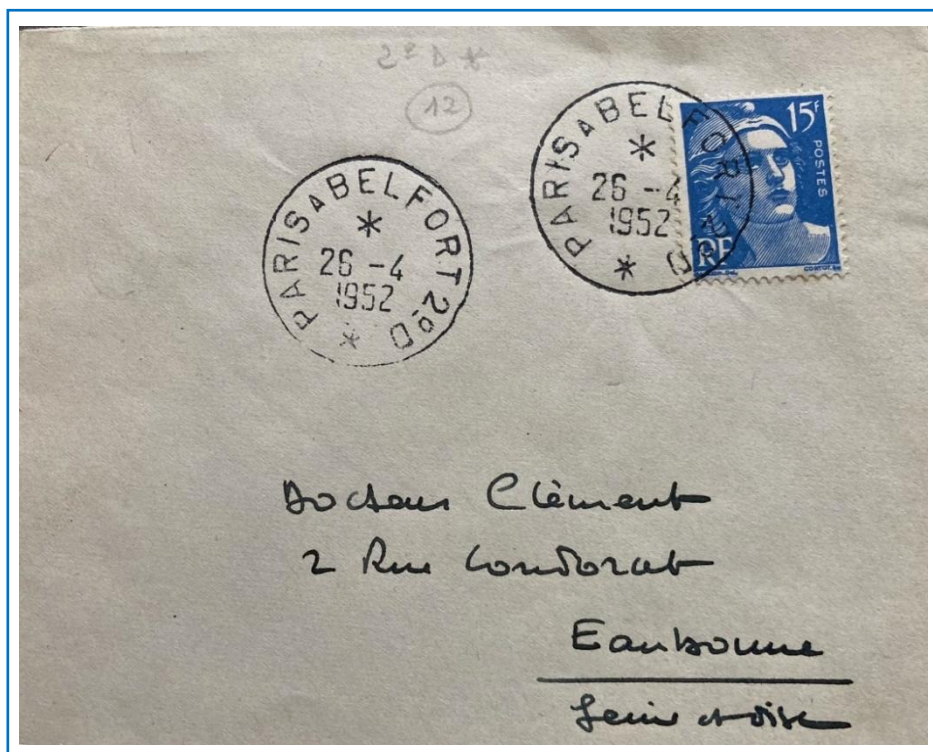 2e D *
12
PARIS A BELFORT 2º D
*
26 -4
1952
*
PARIS A BELFORT 2º D
*
26 -4
1952
*
15F
POSTES
RF
Docteur Clément
2 Rue Condorcet
Eaubonne
Seine et Oise